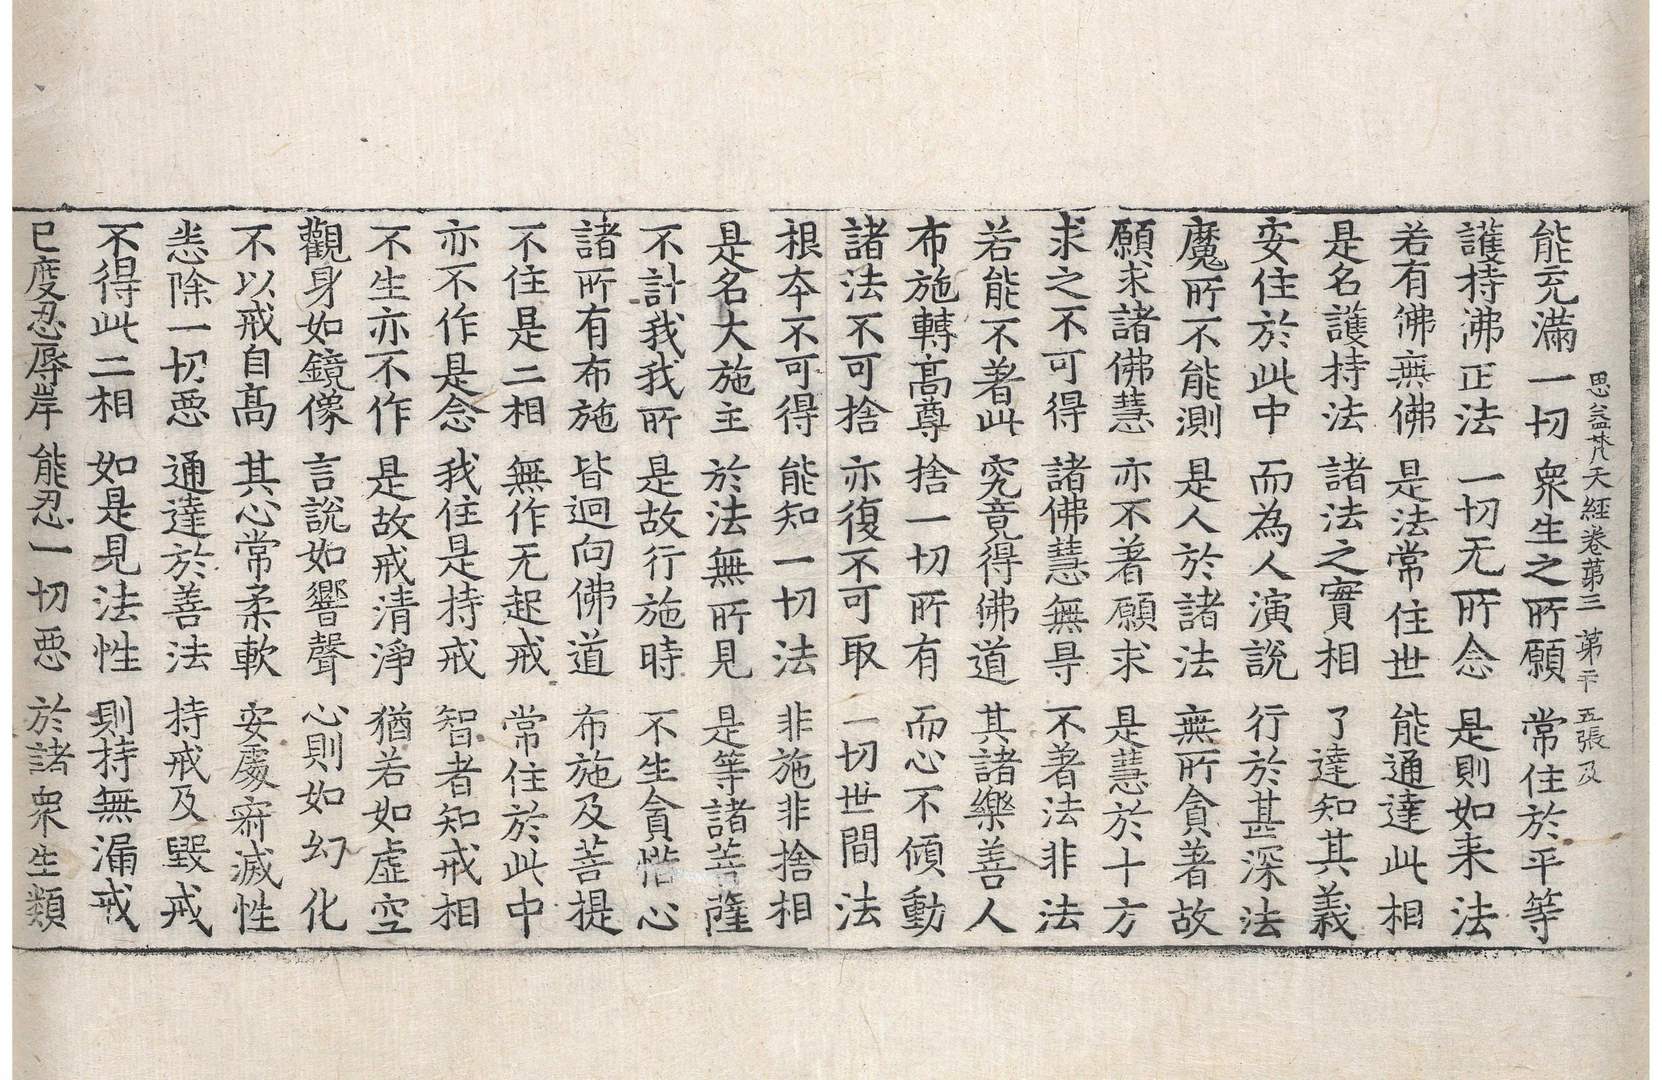 思益梵天經卷第三 第二十五張 及
能充滿一切 衆生之所願 常住於平等
護持沸正法 一切无所念 是則如来法
若有佛無佛 是法常住世 能通達此相
是名護持法 諸法之實相 了達知其義
安住於此中 而為人演說 行於甚深法
魔所不能測 是人於諸法 無所貪著故
願求諸佛慧 亦不著願求 是慧於十方
求之不可得 諸佛慧無㝵 不著法非法
若能不著此 究竟得佛道 其諸樂善人
布施轉高尊 捨一切所有 而心不傾動
諸法不可捨 亦復不可取 一切世間法
根夲不可得 能知一切法 非施非捨相
是名大施主 於法無所見 是等諸菩薩
不計我我所 是故行施時 不生貪惜心
諸所有布施 皆迴向佛道 布施及菩提
不住是二相 無作无起戒 常住於此中
亦不作是念 我住是持戒 智者知戒相
不生亦不作 是故戒清淨 猶若如虛空
觀身如鏡像 言說如響聲 心則如幻化
不以戒自高 其心常柔軟 安處寂滅性
悉除一切惡 通達於善法 持戒及毀戒
不得此二相 如是見法性 則持無漏戒
已度忍辱岸 能忍一切惡 於諸衆生類